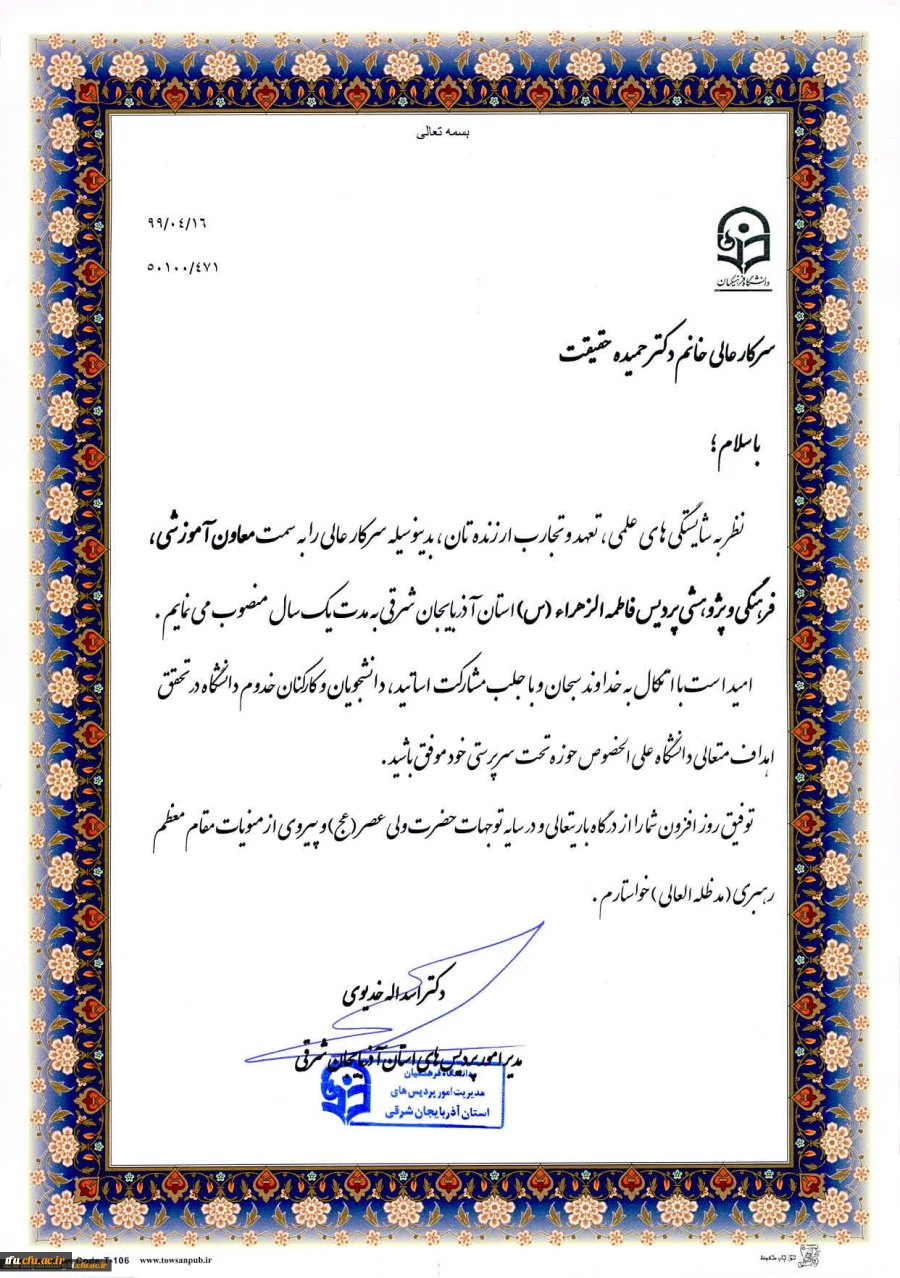 بسمه تعالی
۹۹/۰٤/۱٦
۵۰۱۰۰/٤۷۱
دانشگاه فرهنگیان
سرکار عالی خانم دکتر حمیده حقیقت
با سلام ؛
نظر به شایستگی های علمی ، تعهد و تجارب ارزنده تان ، بدینوسیله سرکار عالی را به سمت معاون آموزشی ،
فرهنگی و پژوهشی پردیس فاطمه الزهراء (س) استان آذربایجان شرقی به مدت یک سال منصوب می نمایم .
امید است با اتکال به خداوند سبحان و با جلب مشارکت اساتید ، دانشجویان و کارکنان خدوم دانشگاه در تحقق
اهداف متعالی دانشگاه علی الخصوص حوزه تحت سرپرستی خود موفق باشید .
توفیق روز افزون شما را از درگاه باریتعالی و در سایه توجهات حضرت ولی عصر (عج) و پیروی از منویات مقام معظم
رهبری (مد ظله العالی) خواستارم .
دکتر اسداله خدیوی
مدیر امور پردیس های استان آذربایجان شرقی
دانشگاه فرهنگیان
مدیریت امور پردیس های
استان آذربایجان شرقی
tfu.cfu.ac.ir
Code:T-106 www.towsanpub.ir